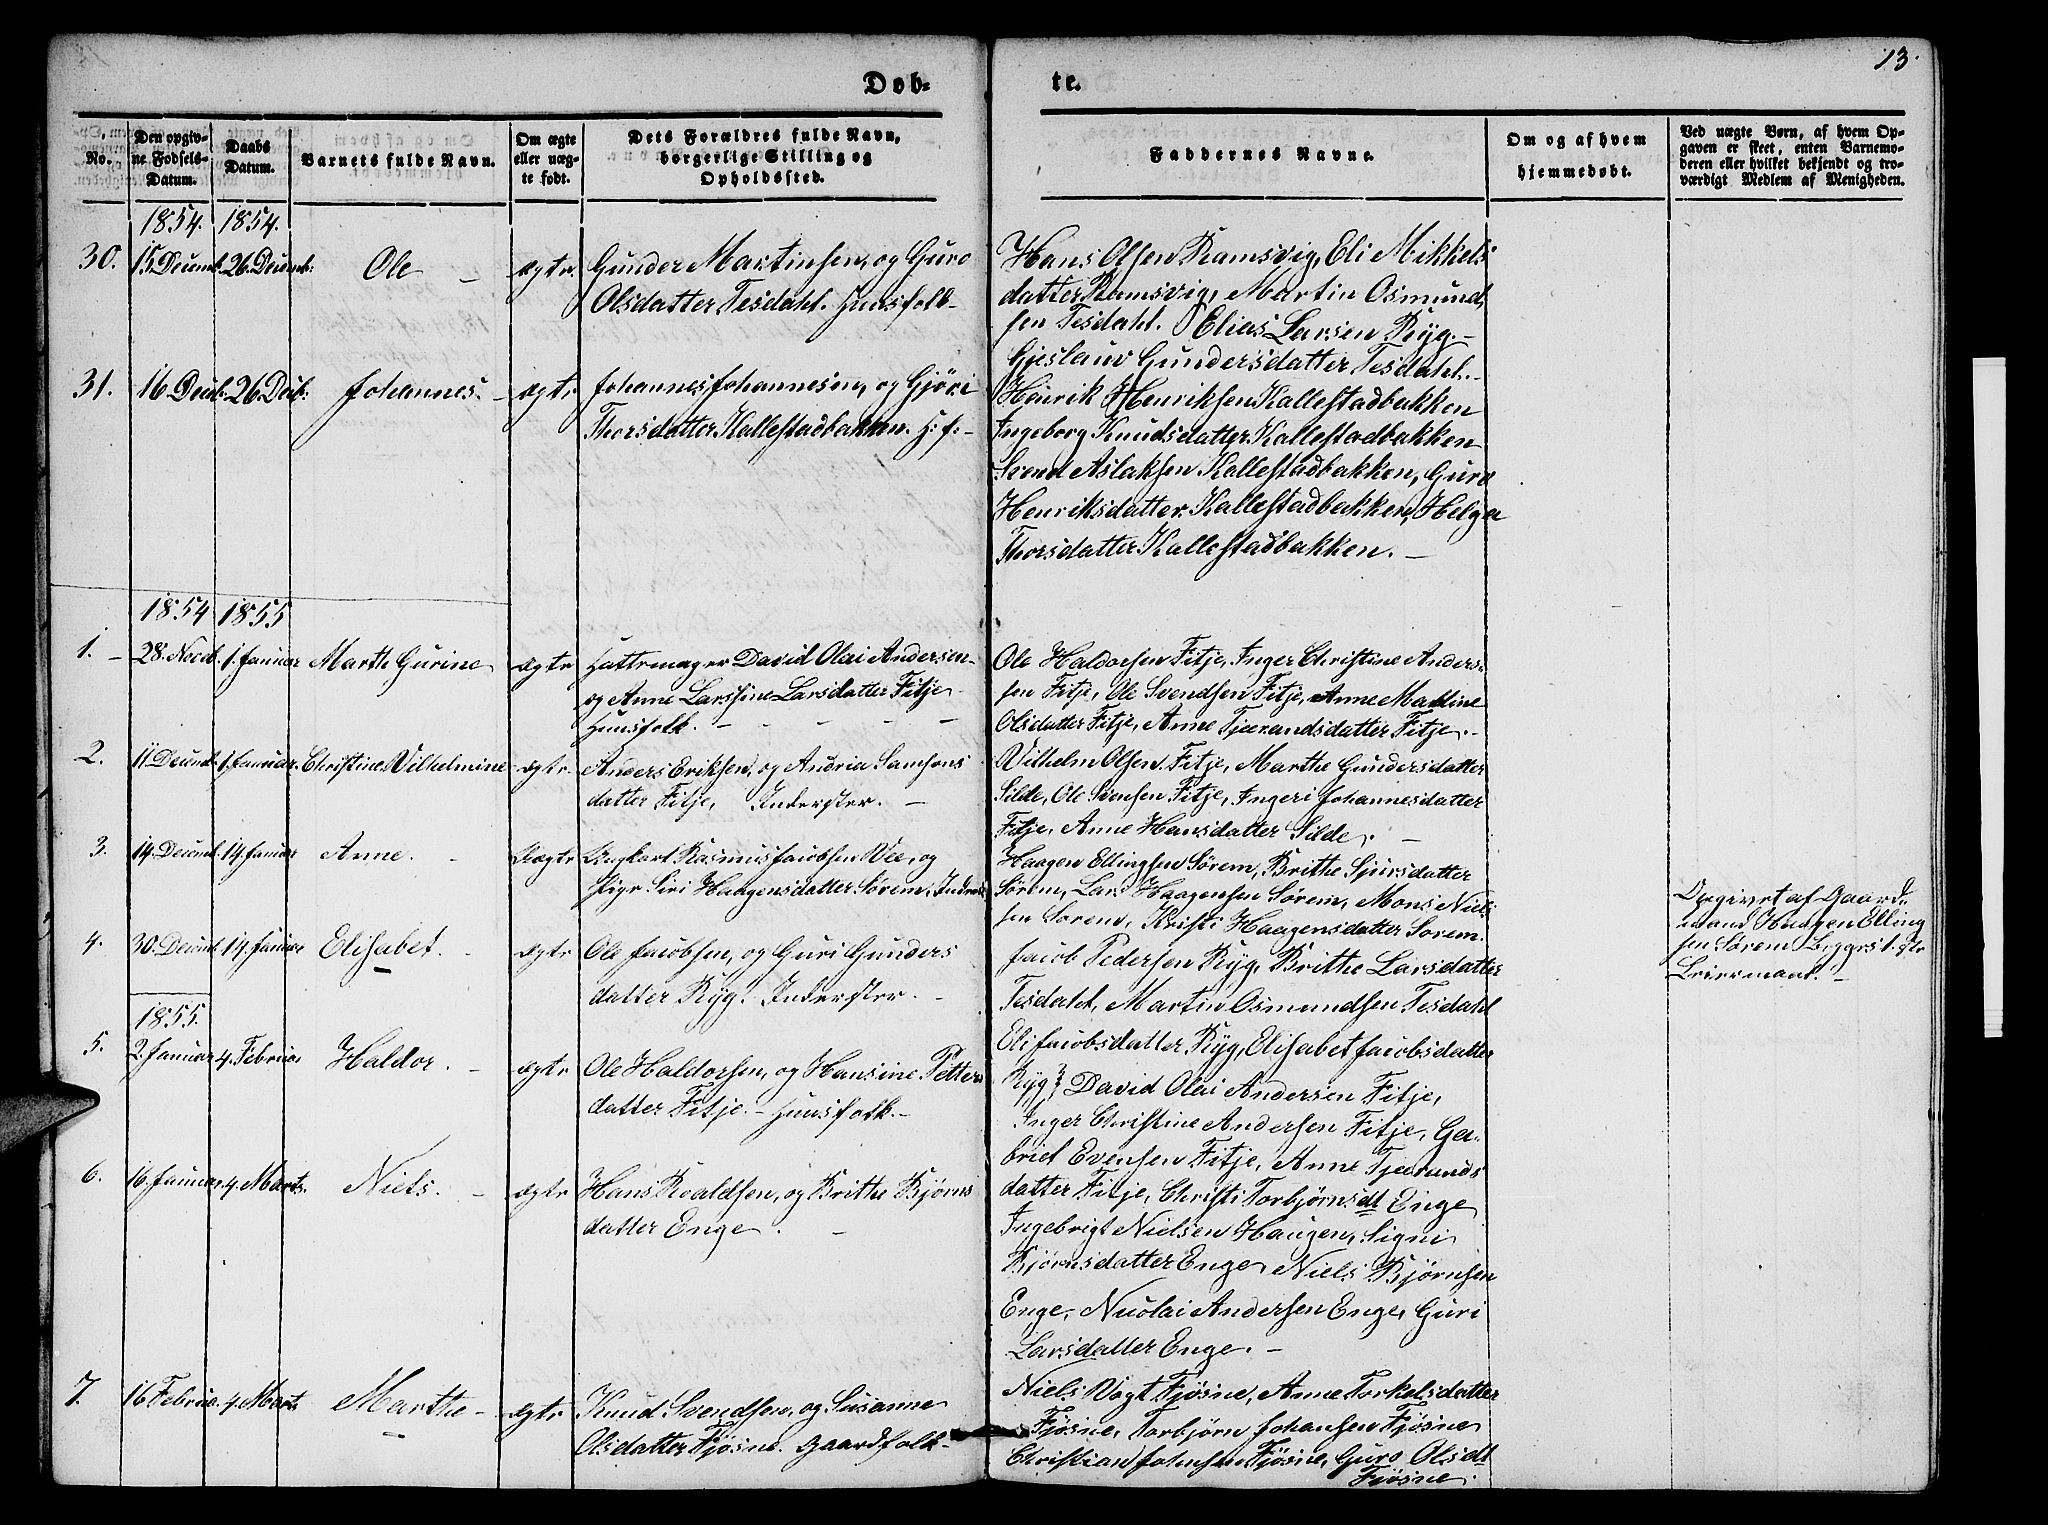 13.
Døb-
te.
No.
Den opgiv-
ne Fødsels-
Datum.
Daabs
Datum.
Barnets fulde Navn.
Om ægte
eller uæg-
te født.
Dets Forældres fulde Navn,
borgerlige Stilling og
Opholdssted.
Faddernes Navne.
Om og af hvem
hjemmedøbt.
Ved uægte Børn, af hvem Op-
gaven er skeet, enten Barnemo-
deren eller hvilket bekjendt og tro-
værdigt Medlem af Menigheden.
1854. 1854.
30. 15 Decemb. 26. Decemb: Ole - ægte
Gunder Martinsen, og Guro
Olsdatter Tesdahl. Huusfolk-
Hans Olsen Ramsvig, Eli Mikkels
datter Ramsvig, Martin Osmund
sen Tesdahl. Elias Larsen Ryg.-
Gjeslauv Gundersdatter Tesdahl.-
31. 16 Decb: 26 Decb: Johannes. - ægte
Johannes Johannesen, og Gjöri
Thorsdatter Kallestadbakken. H: f: -
Henrik Henriksen Kallestadbakken
Ingeborg Knudsdatter Kallestadbakken
Svend Aslaksen Kallestadbakken, Guro
Henriksdatter Kallestadbakken, Helga
Thorsdatter Kallestadbakken. -
1854 1855
1. - 28. Novb. 1. Januar Marthe Gurine ægte
Hattemager David Olai Andersen-
og Anne Larssine Larsdatter Fitje
Huusfolk. - - - - -
Ole Haldorsen Fitje, Inger Christine Anders-
sen Fitje, Ole Svendsen Fitje, Anne Maline
Olsdatter Fitje, Anne Tjærandsdatter Fitje.-
2. 11 Decemb. 1. Januar. Christine Vilhelmine ægte
Anders Eriksen, og Andria Samsons
datter Fitje, Inderster. -
Vilhelm Olsen Fitje, Marthe Gundersdatter
Silde, Ole Svensen Fitje, Ingeri Johannesdatter
Fitje, Anne Hansdatter Silde. -
3. 14. Decemb. 14. Januar Anne. - Uægte
Ungkarl Rasmus Jacobsen Vee, og
Pige Siri Haagensdatter Sørem, Inders
Haagen Ellingsen Sørem, Brithe Sjursdatter
Sørem, Lars Haagensen Sørem, Mons Niels
sen Sørem, Kristi Haagensdatter Sorem.
Opgivet af Gaard-
mand Haagen Elling
sen Sørem
Leiermaal. -
4. 30. Decemb. 14. Januar Elisabet. - ægte
Ole Jacobsen, og Guri Gunders
datter Ryg. Inderster. -
Jacob Pedersen Ryg, Brithe Larsdatter
Tesdahl, Martin Osmundsen Tesdahl
Eli Jacobsdatter Ryg, Elisabet Jacobsdatter
Ryg
1855.
5. 2. Januar 4. Februar Haldor. - ægte
Ole Haldorsen, og Hansine Petters
datter Fitje. - Huusfolk. -
David Olai Andersen Fitje,
Inger Christine Andersen Fitje, Ga-
briel Evensen Fitje, Anne Tjærands
datter Fitje, Christi Torbjørnsdt Enge
6. 16. Januar 4. Marts. Niels. - ægte
Hans Roaldsen, og Brithe Bjørns
datter Enge. -
Ingebrigt Nielsen Haugen, Signi
Bjørnsdatter Enge, Niels Bjørnsen
Enge, Nicolai Andersen Enge, Guri
Larsdatter Enge. -
7. 16 Februa. 4. Marts Marthe - ægte
Knud Svendsen, og Susanne
Olsdatter Fjøsne. Gaardfolk-
Niels Vogt Fjøsne, Anne Torkelsdatter
Fjøsne, Torbjørn Johansen Fjøsne
Christian Johnsen Fjøsne, Guro Olsdt
Fjøsne.